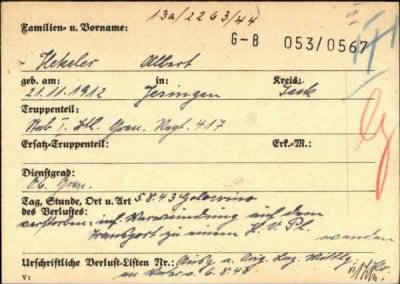 13a/2263/44
Familien- u. Vorname:
G-B 053/0567
Hekeler Albert
geb. am: in: Kreis:
21.11.1912 Jesingen Teck
Truppenteil:
Stab I. Btl. Gren. Regt. 417
Ersatz-Truppenteil: Erk.-M.:
Dienstgrad:
Ob. Gren.
Tag, Stunde, Ort u. Art 5.8.43 Golowino
des Verlustes:
verstorben, inf. Verwundung auf dem
Transport zu einem H. V. Pl.
Urschriftliche Verlust-Listen Nr.:
v. 6.8.43
V 1